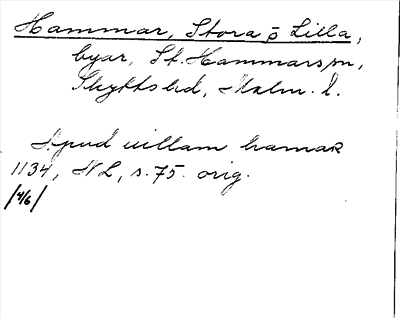 Hammar, Stora o Lilla,
byar, St. Hammars sn,
Skytts hd, Malm. l.
Apud uillam hamar
1134, NL, s. 75. orig.
/4/6/